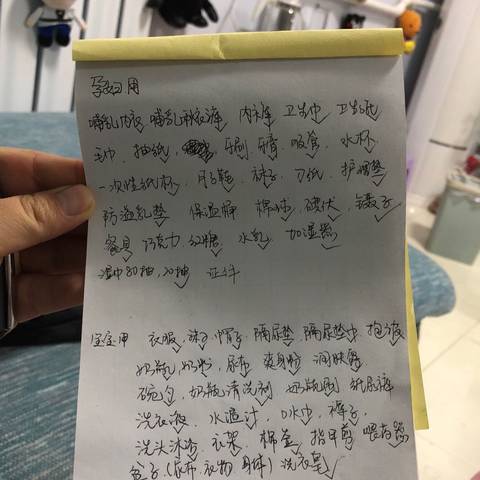 孕妇用
哺乳内衣 哺乳秋衣裤 内裤 卫生巾 卫生纸
毛巾、抽纸, 牙刷 牙膏 吸管、水杯
一次性纸杯、月子鞋 袜子、刀纸、护理垫
防溢乳垫 保温瓶 棉球 碘伏 镊子
餐具 巧克力 红糖、水乳 加湿器
湿巾80抽,20抽 证件
宝宝用 衣服 袜子 帽子 隔尿垫 隔尿垫巾 抱被
奶瓶 奶粉, 尿布 爽身粉 润肤露
碗勺、奶瓶清洗剂 奶瓶刷 纸尿裤
洗衣液、水温计、口水巾、裤子
洗头沐浴、衣架、棉签、指甲剪 喂药器
盆子(尿布 衣物 身体) 洗衣皂